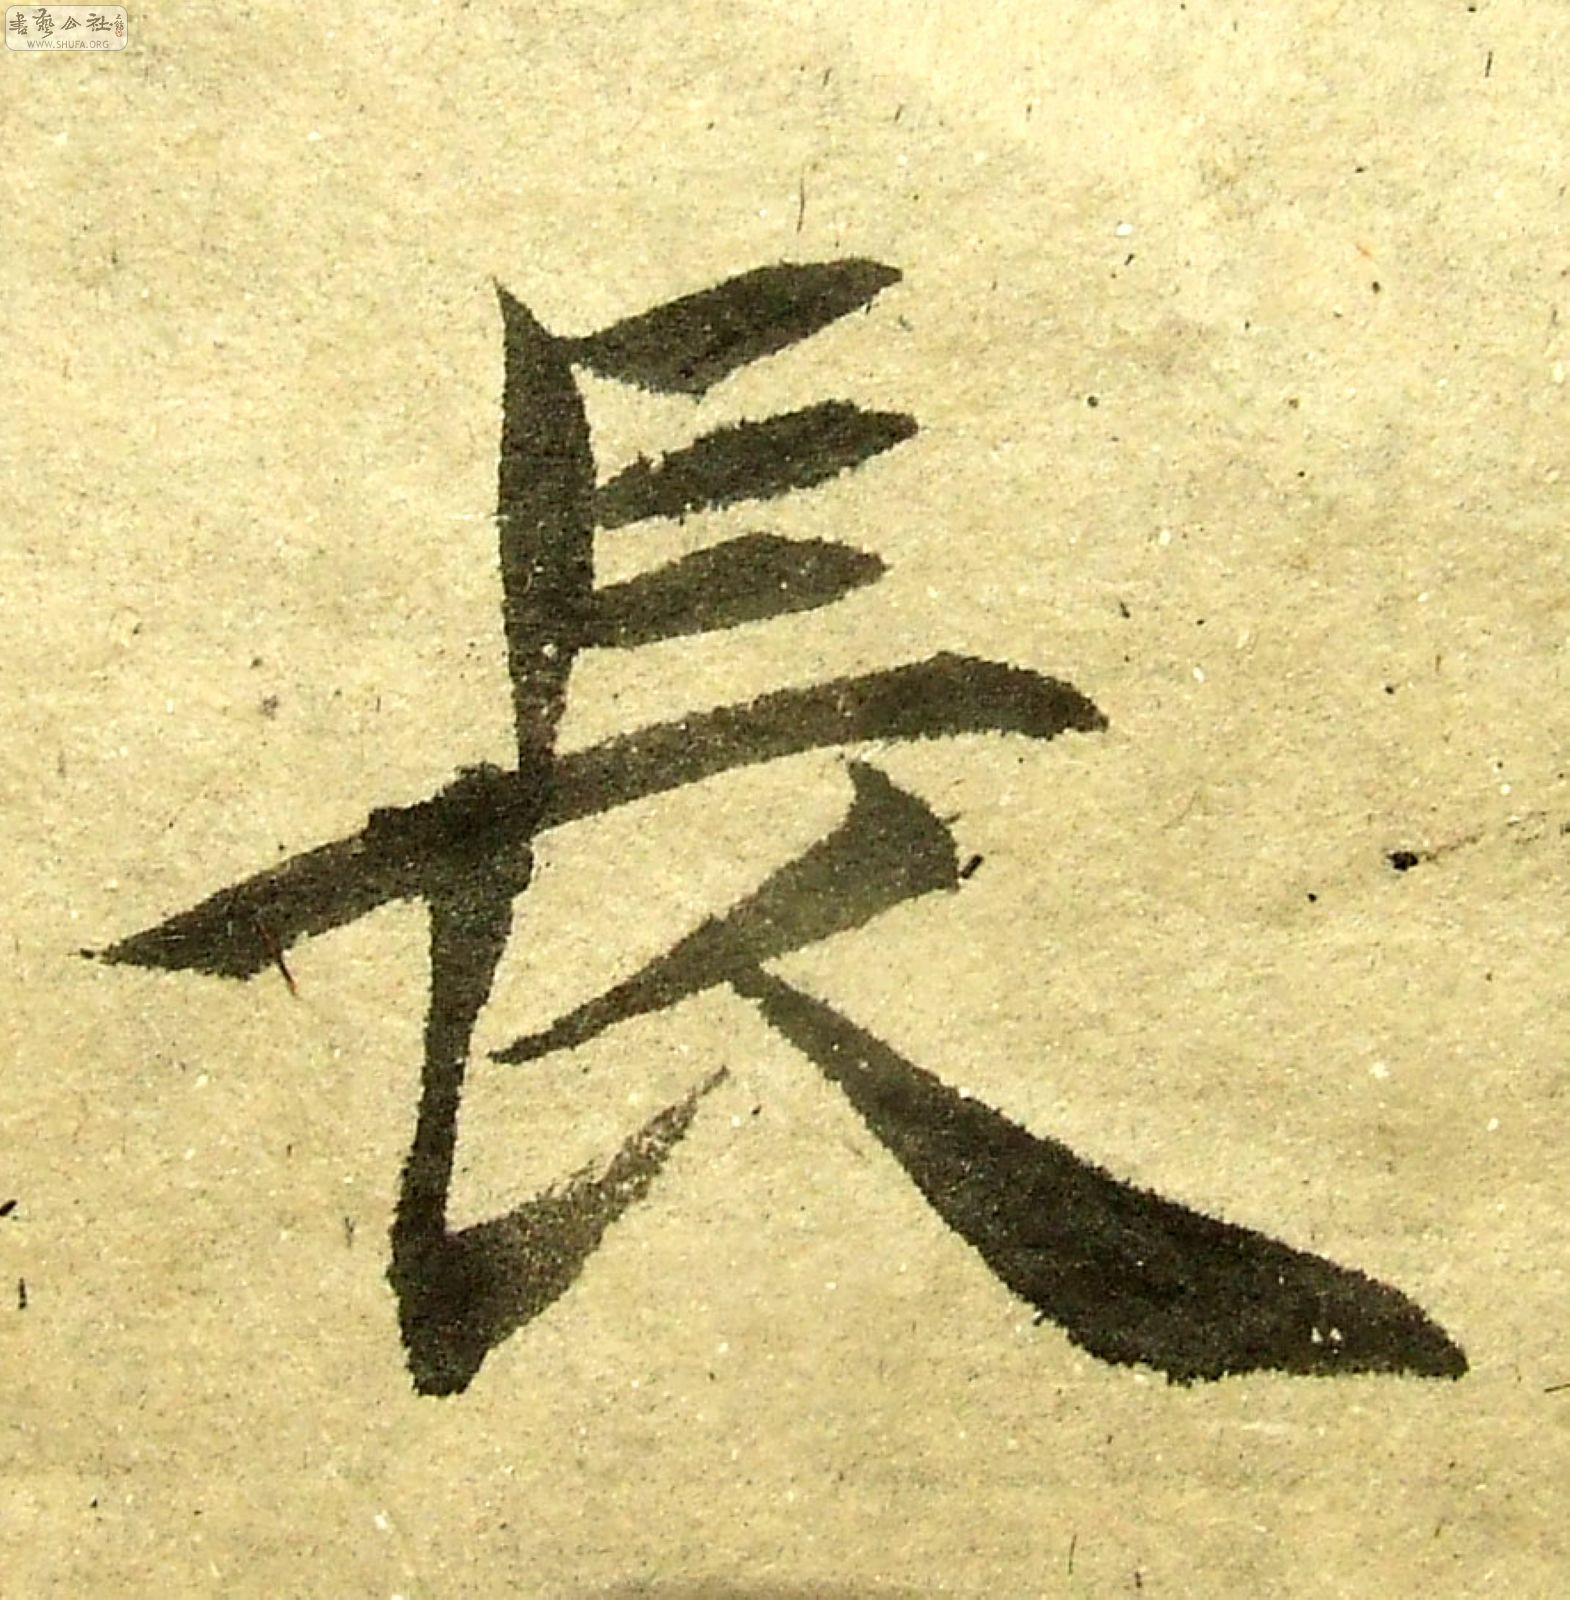 書藝公社
WWW.SHUFA.ORG
長